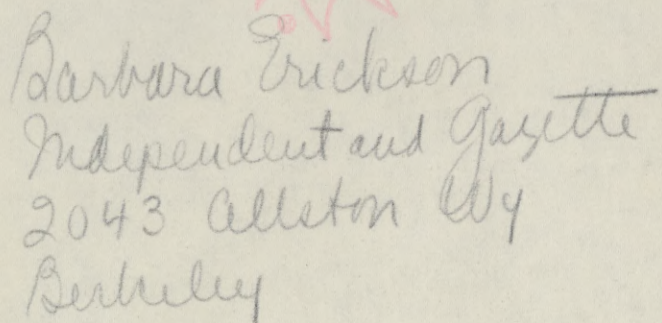 Barbara Erickson
Independent and Gazette
2043 Allston Wy
Berkeley